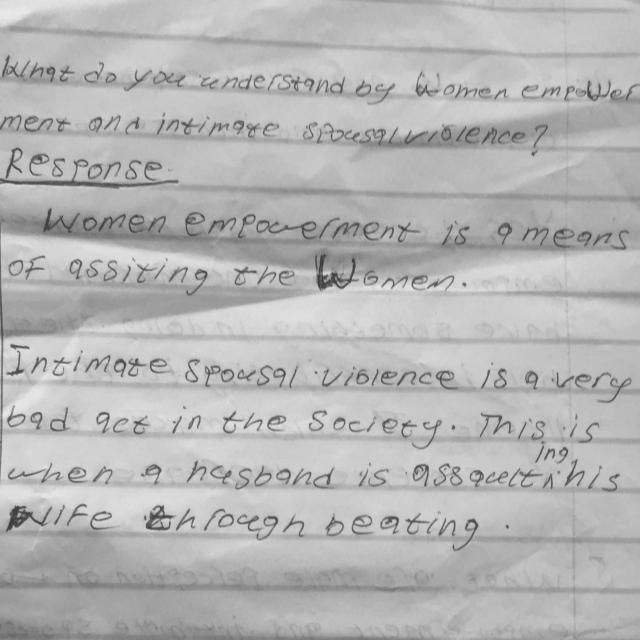 What do you understand by Women empower
ment and intimate spousal violence?
Response.
Women empowerment is a means
of assiting the Women.
Intimate spousal violence is a very
bad act in the society. This is
when a husband is assaulting his
wife through beating.